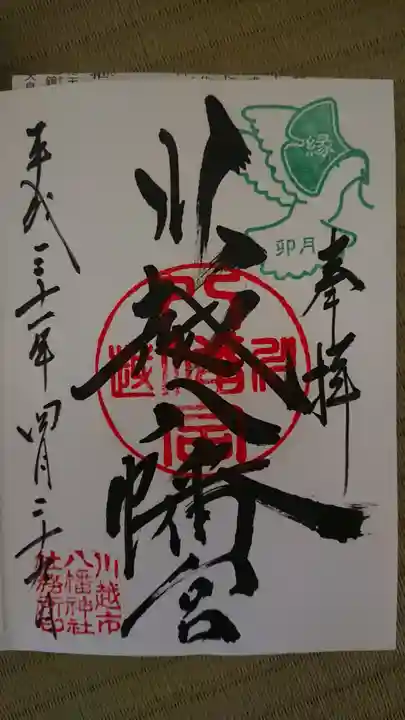 奉拝
縁
卯月
川越八幡宮
平成三十一年四月二十
川越市
八幡神社
社務所印